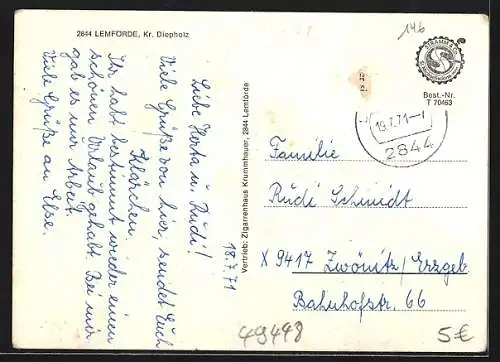 2844 LEMFÖRDE, Kr. Diepholz
18.7.71
Liebe Herta u. Rudi!
Viele Grüße von hier, sendet Euch
Klärchen.
Ihr habt bestimmt wieder einen
schönen Urlaub gehabt. Bei mir
gab es nur Arbeit.
Viele Grüße an Else.
Vertrieb: Zigarrenhaus Krummhauer, 2844 Lemförde
146
STRAMM & CO.
Best.-Nr.
T 70463
19.7.71
2844
Familie
Rudi Schmidt
X 9417 Zwönitz/Erzgeb
Bahnhofstr. 66
49498
5€